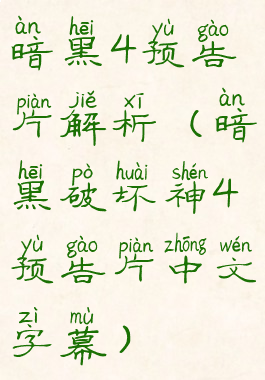 àn hēi yù gào
暗黑4预告
piàn jiě xī àn
片解析（暗
hēi pò huài shén
黑破坏神4
yù gào piàn zhōng wén
预告片中文
zì mù
字幕）